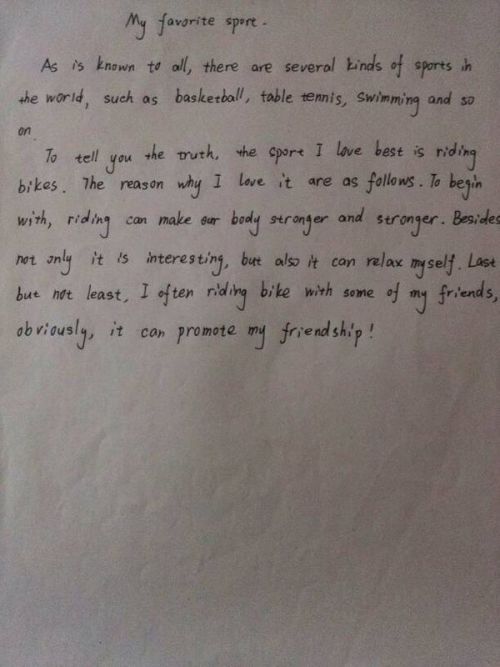 My favorite sport.
As is known to all, there are several kinds of sports in
the world, such as basketball, table tennis, swimming and so
on.
To tell you the truth, the sport I love best is riding
bikes. The reason why I love it are as follows. To begin
with, riding can make our body stronger and stronger. Besides
not only it is interesting, but also it can relax myself. Last
but not least, I often riding bike with some of my friends,
obviously, it can promote my friendship!